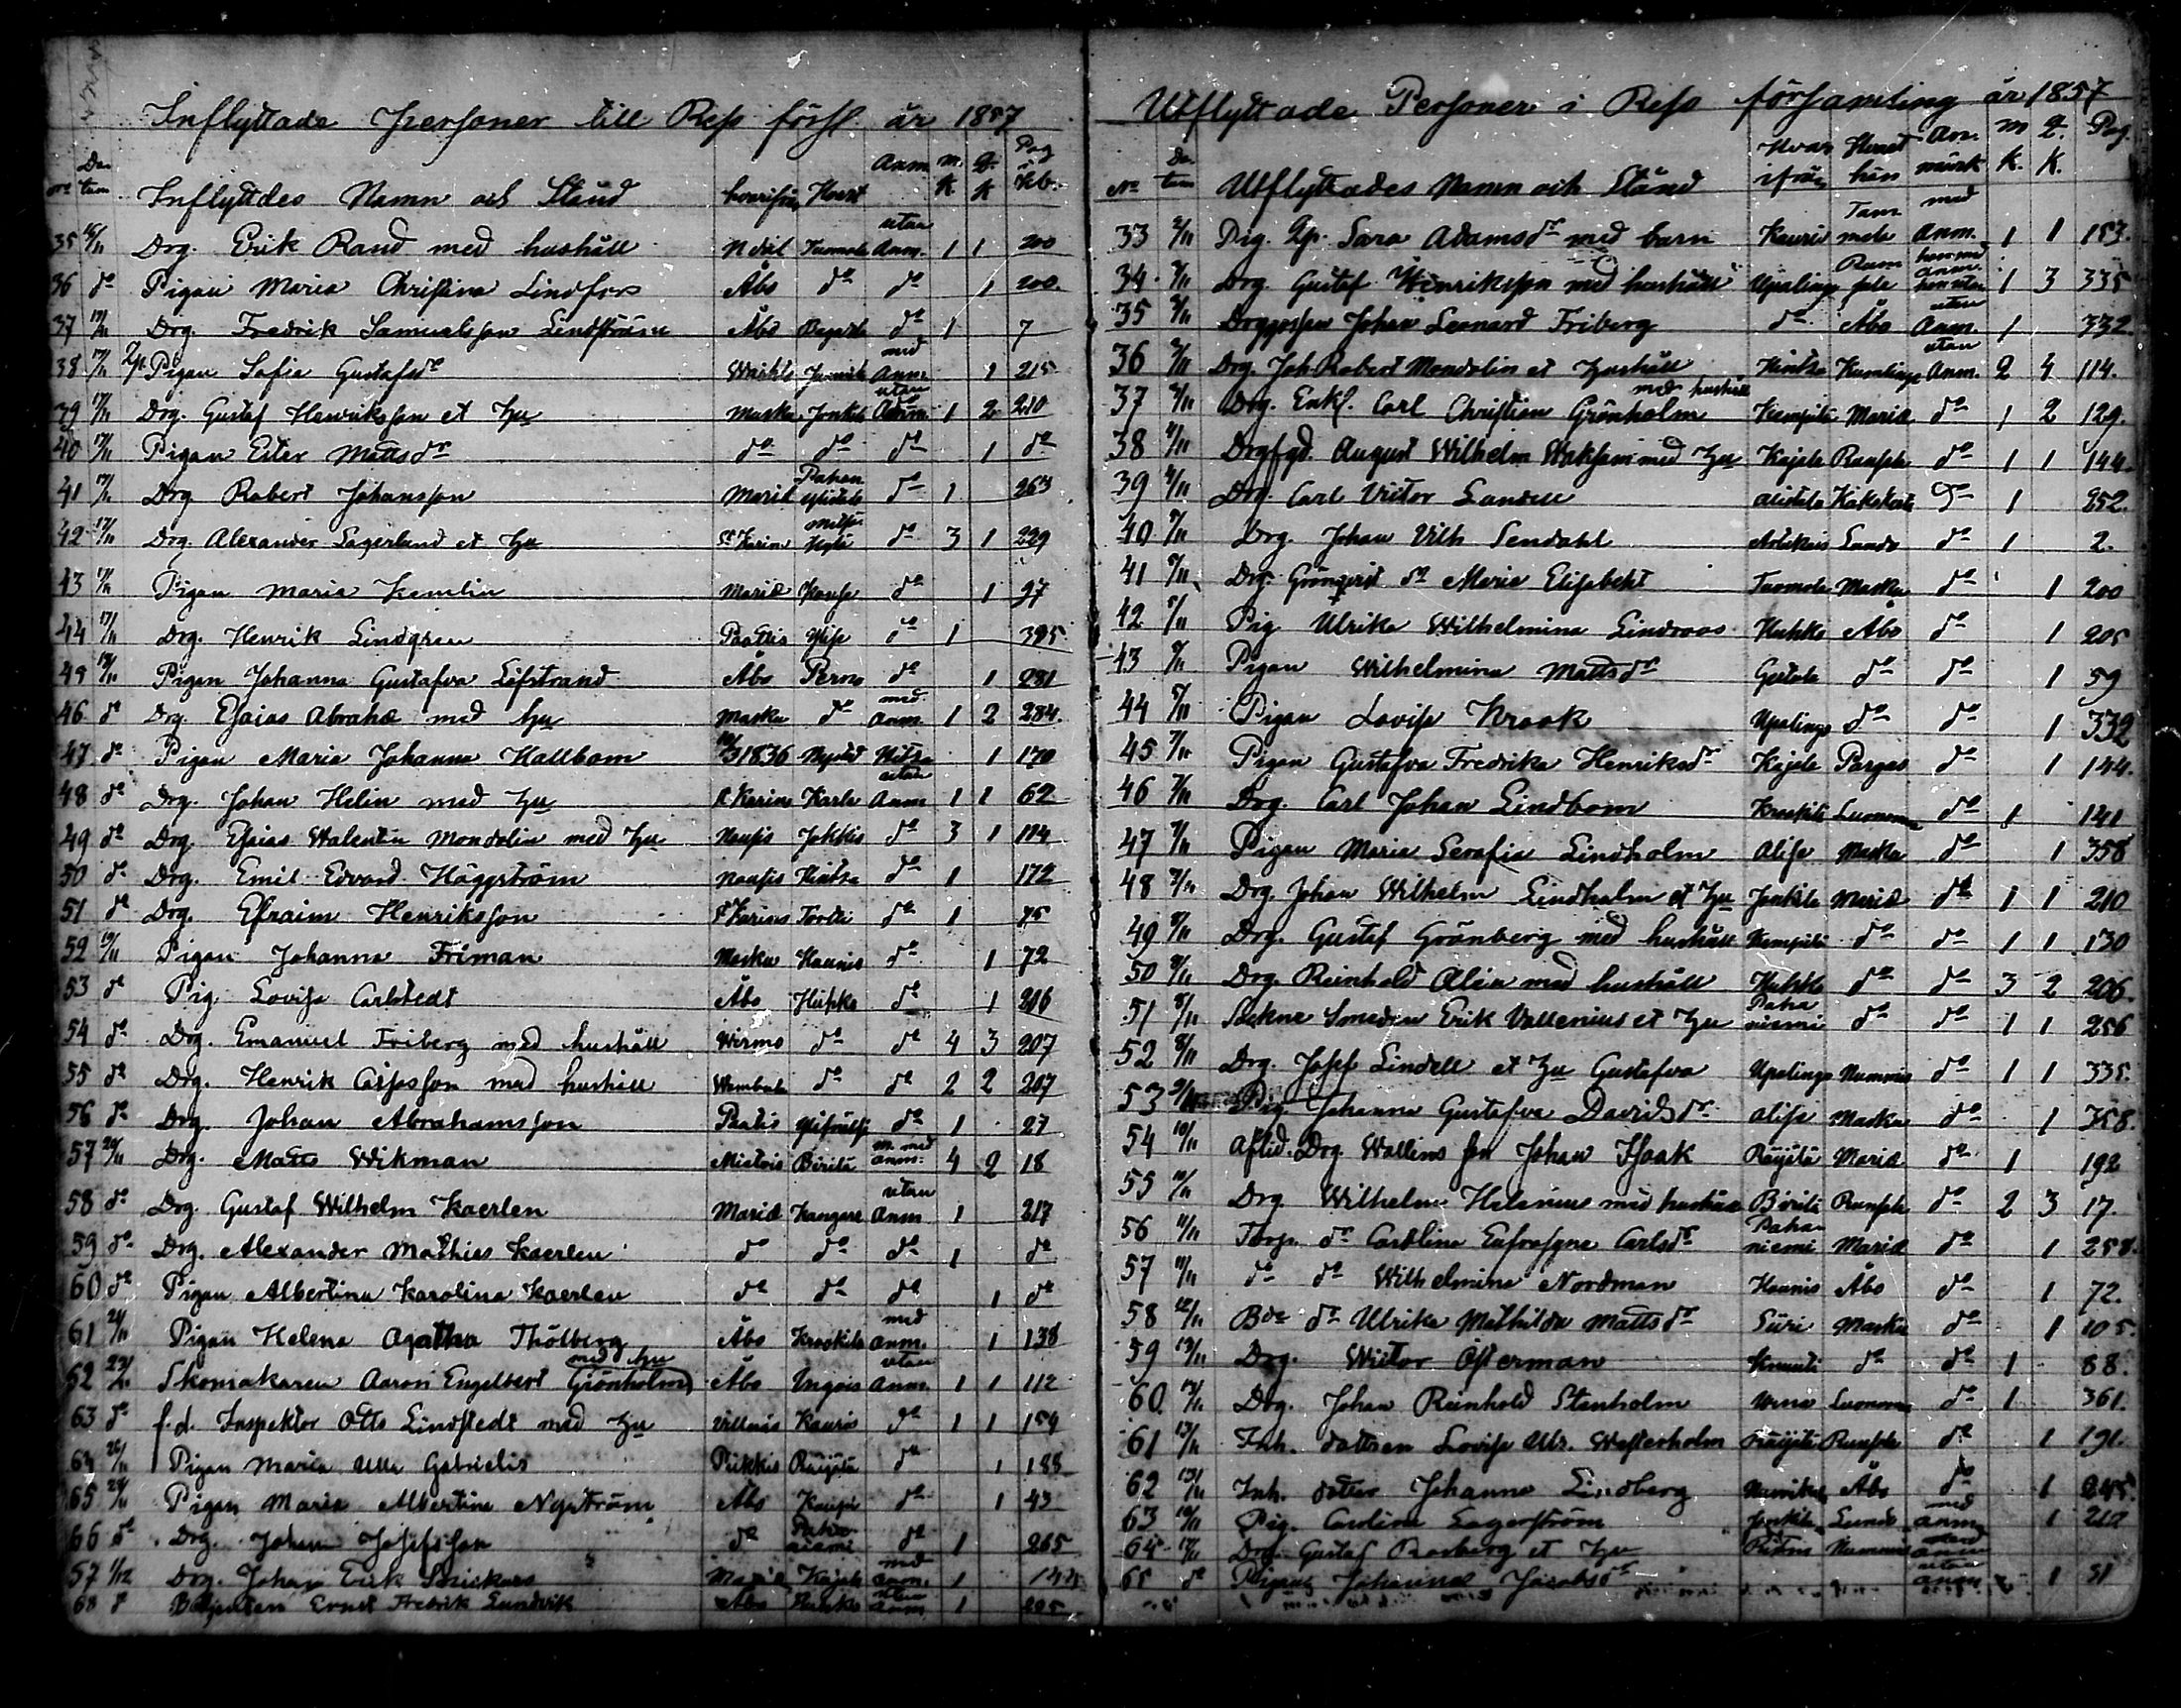 Inflyttade Personer till Reso förs. år 1857
No Datum Inflyttdes Namn och Stånd hvarifrån Hvart Anm. m. k q. k Pag i Kb.
35 16/11 Drg. Erik Rand med hushåll Nådal Tuomola utan Anm. 1 1 200
36 do Pigan Maria Christina Lindfors Åbo do do 1 200
37 17/11 Drg. Fredrik Samuelsson Lindström Åbo do 1 7
38 17/11 Pigan Sofia Gustafsdr med Anm. 1 215
39 17/11 Drg. Gustaf Henriksson et hu Masku Jonkila utan Anm. 1 2 210
40 17/11 Pigan Ester Mattsdr do do do 1 do
41 17/11 Drg Robert Johansson Marie do 1 263
42 17/11 Drg. Alexander Lagerlund et hu St Karins do 3 1 229
43 17/11 Pigan Maria Hemlin Marie do 1 97
44 17/11 Drg. Henrik Lindgren Paattis do 1 395
45 18/11 Pigan Johanna Gustafva Löfstrand Åbo Perno do 1 281
46 do Drg. Esaias Abrahs med hu Masku do med anm. 1 2 284.
47 do Pigan Maria Johanna Hallbom 1836 1 170
48 do Drg. Johan Helin med hu St Karins Karla utan Anm 1 1 62
49 do Drg. Esaias Walentin Mondolin med hu Nousis Jokkis do 3 1 114
50 do Drg. Emil Edvard Häggström Nousis Kintsa do 1 172
51 do Drg. Efraim Henriksson St Karins do 1 75
52 19/11 Pigan Johanna Friman Masku Haunis do 1 72
53 do Pig Lovisa Carlstedt Åbo Huhko do 1 206
54 do Drg. Emanuel Friberg med hushåll Wirmo do do 4 3 207
55 do Drg. Henrik Cajsasson med hushåll do do 2 2 207
56 do Drg. Johan Abrahamsson Paatis do 1 27
57 20/11 Drg. Matts Wikman Mietois Böritä m. med anm. 4 2 18
58 do Drg. Gustaf Wilhelm Kaerlen Marie Kangare utan Anm 1 217
59 do Drg. Alexander Mathias Kaerlen do do do 1 do
60 do Pigan Albertina Karolina Kaerlen do do do 1 do
61 21/11 Pigan Helena Agatha Thölberg Åbo Kraskila med anm. 1 138
62 23/11 Skomakaren Aaron Engelbert Grönholm med hu Åbo Ingois utan Anm. 1 1 112
63 do f.d. Inspektor Otto Lindstedt med hu Villnäs Kauris do 1 1 154
64 26/11 Pigan Maria Ulla Gabrielis Pikkis Räijälä do 1 188
65 28/11 Pigan Maria Albertina Nyström Åbo do 1 43
66 do Drg. Johan Josefsson do Pahaniemi do 1 265
57 1/12 Drg. Johan Erik Marie Kajala med anm. 1 144
68 d Ernst Fredrik Lundvik Åbo Huhko utan anm. 1 205
Utflyttade Personer i Reso församling år 1857
No Datum Utflyttades Namn och Stånd Hvarifrån Hvart hän Anmärk m k. q. k. Pag.
33 2/11 Pig. Lp. Sara Adamsdr med barn Kauris med Anm. 1 1 153.
34. 2/11 Drg. Gustaf Henriksson med hushåll Upalinge han med anm. hon utan 1 3 335
35 2/11 Johan Leonard Friberg do Åbo utan Anm. 1 332.
36 2/11 Drg. Joh. Robert Mondolin et hushåll Kintsa Kumlinge utan Anm. 2 4 114.
37 2/11 Drg. Enkl. Carl Christian Grönholm med hushåll Marie do 1 2 129.
38 4/11 August Wilhelm med hu Kajala Runsala do 1 1 144
39 4/11 Drg. Carl Victor Landell Alistalo Kakskerta do 1 252.
40 5/11 Drg. Johan Vilh Sendahl Artukais Lundo do 1 2.
41 5/11 Drg. Grönqvist dr Maria Elisabeht Tuomola Masku do 1 200
42 5/11 Pig Ulrika Wilhelmina Lindroos Huhko Åbo do 1 205
43 5/11 Pigan Wilhelmina Mattsdr do do 1 59
44 5/11 Pigan Lovisa Krook Upalinge do do 1 332
45 7/11 Pigan Gustafva Fredrika Henriksdr Kajala Pargas do 1 144.
46 7/11 Drg. Carl Johan Lindbom Kraskila Luonnonma do 1 141
47 7/11 Pigan Maria Serafia Lindholm Alise Masku do 1 358
48 7/11 Drg. Johan Wilhelm Lindholm et hu Jonkila Marie do 1 1 210
49 8/11 Drg. Gustaf Grönberg med hushåll do do 1 1 130
50 8/11 Drg. Reinhold Alin med hushåll Huhko do do 3 2 206.
51 8/11 Sockne Smeden Erik Vallenius et hu Pahaniemi do do 1 1 256
52 8/11 Drg. Josef Lindell et hu Gustafva Upalinge Nummis do 1 1 335.
53 Pig. Johanna Gustafva Davidsdr Alise Masku do 1 358.
54 10/11 Aflid. Drg. Wallins son Johan Isaak Räijälä Marie do 1 192
55 10/11 Drg. Wilhelm Helenius med hushåll Böritä Runsala do 2 3 17.
56 11/11 Torp. dr Carolina Eufrosyne Carlsdr Pahaniemi Marie do 1 258.
57 11/11 do do Wilhelmina Nordman Haunis Åbo do 1 72.
58 12/11 dr Ulrika Mathilda Mattsdr Suri Masku do 1 105.
59 13/11 Drg. Wictor Österman do do 1 88.
60. 13/11 Drg. Johan Reinhold Stenholm Luonnonma do 1 361.
61 13/11 Inh. dottren Lovisa Ulr. Westerholm Räijälä Runsala do 1 191.
62 13/11 Inh. dotter Johanna Lindberg Åbo do 1
63 Pig. Carolina Lagerström Jonkila Lundo med anm. 1 212
64 Drg. Gustaf et hu Nummis
65 do Pigan Johanna Jacobsdr utan anm. 1 51